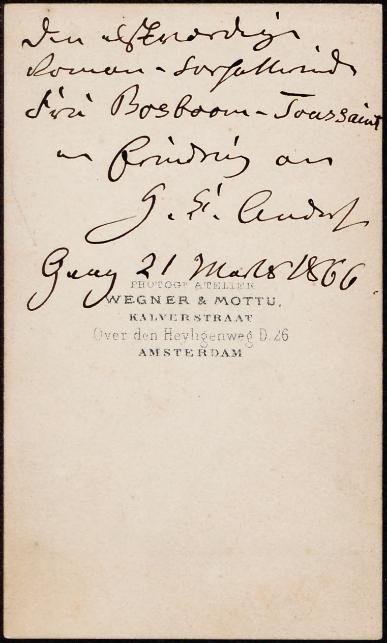 Den elskværdige
Roman-Forfatterinde
Frú Bosboom-Toussaint
en Erindring om
H. C. Andersen
Haag 21 Marts 1866.
PHOTOGR ATELIER
WEGNER & MOTTU,
KALVERSTRAAT
Over den Heyligenweg D.26
AMSTERDAM